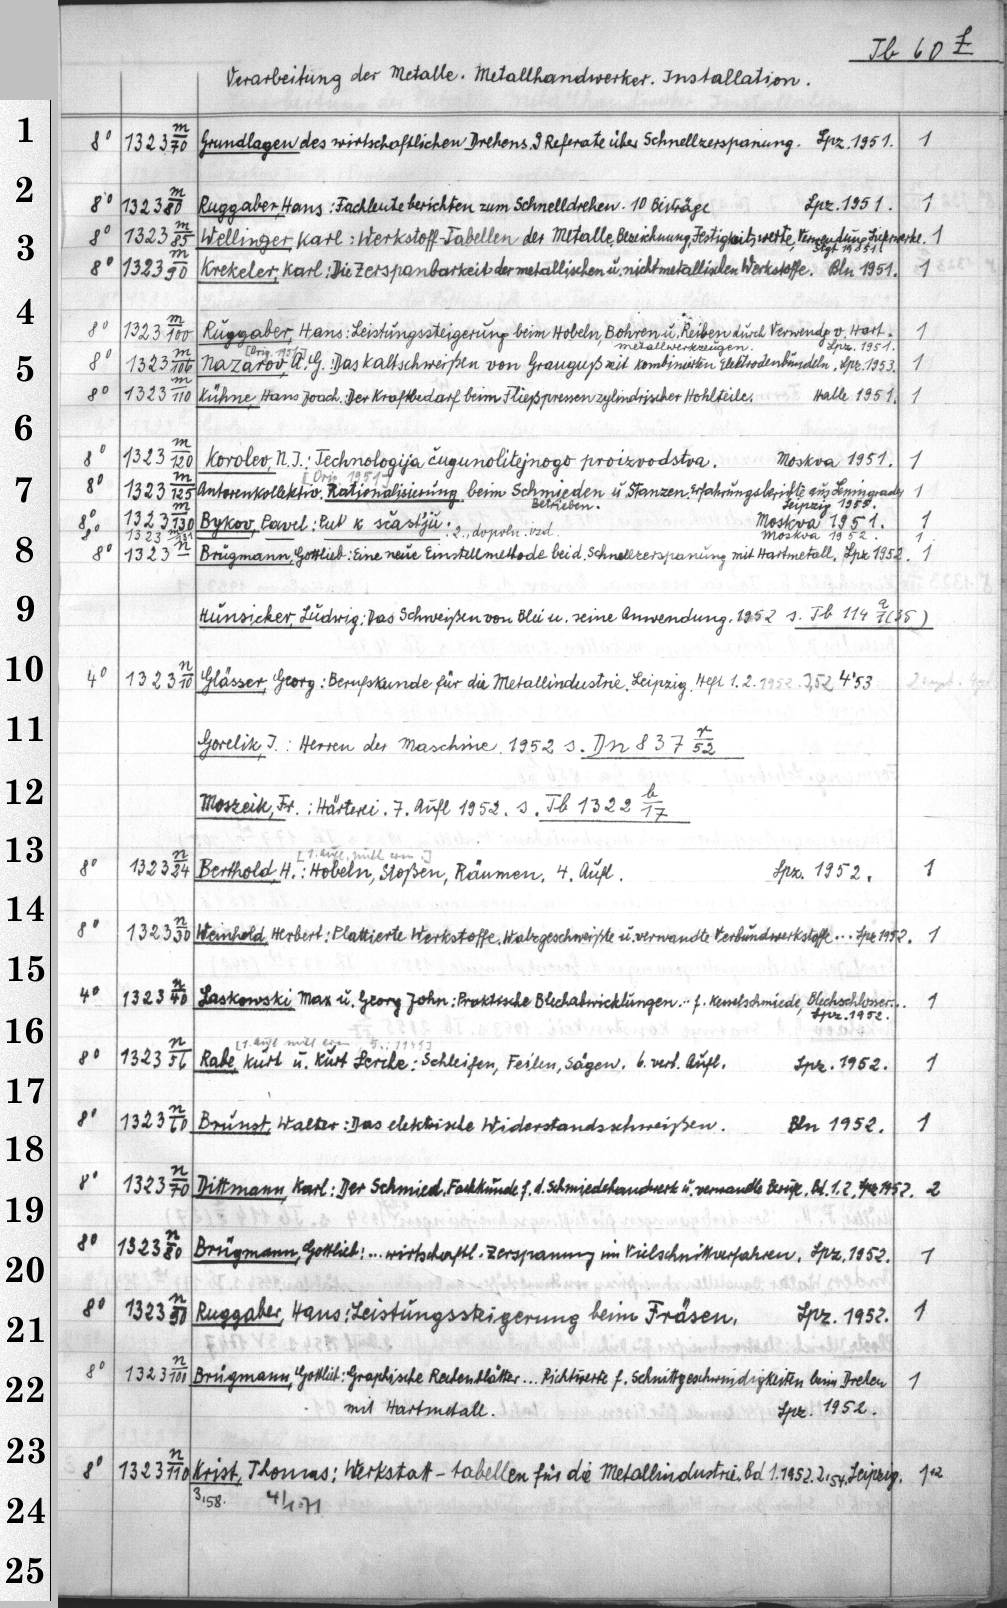 Tb 60 f
Verarbeitung der Metalle. Metallhandwerker. Installation.
1
8° 1323 m/70 Grundlagen des wirtschaftlichen Drehens. 9 Referate über Schnellzerspanung. Lpz. 1951. 1
2
8° 1323 m/80 Ruggaber, Hans: Fachleute berichten zum Schnelldrehen. 10 Beiträge Lpz. 1951. 1
8° 1323 m/85 Wellinger, Karl: Werkstoff-Tabellen der Metalle, Bezeichnung, Festigkeitswerte, Verwendung, Lieferwerke. 1
3
Stgt 1951
8° 1323 m/90 Krekeler, Karl: Die Zerspanbarkeit der metallischen u. nichtmetallischen Werkstoffe. Bln 1951. 1
4
8° 1323 m/100 Ruggaber, Hans: Leistungssteigerung beim Hobeln, Bohren u. Reiben durch Verwendg v. Hart- 1
metallwerkzeugen. Lpz. 1951.
[Orig. 1951]
5
8° 1323 m/106 Nazarov, A. G.: Das Kaltschweißen von Grauguß mit kombinierten Elektrodenbündeln. Lpz. 1953. 1
8° 1323 m/110 Kühne, Hans Joach.: Der Kraftbedarf beim Fließpressen zylindrischer Hohlteile. Halle 1951. 1
6
8° 1323 m/120 Korolev, N. I.: Technologija čugunolitejnogo proizvodstva. Moskva 1951. 1
[Orig. 1951]
7
8° 1323 m/125 Autorenkollektiv. Rationalisierung beim Schmieden u. Stanzen. Erfahrungsberichte aus Leningrader 1
Betrieben. Leipzig 1955.
8° 1323 m/130 Bykov, Pavel: Put' k sčast'ju. Moskva 1951. 1
8° 1323 m/131 2., dopoln. izd. Moskva 1952. 1
8
8° 1323 n Brügmann, Gottlieb: Eine neue Einstellmethode beid. Schnellzerspanung mit Hartmetall. Lpz 1952. 1
9
Hunsicker, Ludwig: Das Schweißen von Blei u. seine Anwendung. 1952 s. Tb 114 a/7(35)
10
4° 1323 n/10 Glässer, Georg: Berufskunde für die Metallindustrie. Leipzig. Heft 1. 2. 1952. 3,52 4'53
11
Gorelik, I.: Herren der Maschine. 1952 s. Dn 837 r/52
12
Moszeik, Fr.: Härterei. 7. Aufl 1952. s. Tb 1322 b/17
13
8° 1323 n/24 Berthold, H.: Hobeln, Stoßen, Räumen. 4. Aufl. Lpz. 1952. 1
14
8° 1323 n/30 Weinhold, Herbert: Plattierte Werkstoffe. Walzgeschweißte u. verwandte Verbundwerkstoffe... Lpz 1952. 1
15
4° 1323 n/40 Laskowski, Max u. Georg John: Praktische Blechabwicklungen... f. Kesselschmiede, Blechschlosser... 1
Lpz. 1952.
16
8° 1323 n/56 Rabe, Kurt u. Kurt Lerche: Schleifen, Feilen, Sägen. 6. verb. Aufl. Lpz. 1952. 1
17
8° 1323 n/60 Brunst, Walter: Das elektrische Widerstandsschweißen. Bln 1952. 1
18
8° 1323 n/70 Dittmann, Karl: Der Schmied. Fachkunde f. d. Schmiedehandwerk u. verwandte Berufe. Bd. 1. 2. Lpz 1952. 2
19
8° 1323 n/80 Brügmann, Gottlieb: ... wirtschaftl. Zerspanung im Vielschnittverfahren. Lpz. 1952. 1
20
8° 1323 n/90 Ruggaber, Hans: Leistungssteigerung beim Fräsen. Lpz. 1952. 1
21
8° 1323 n/100 Brügmann, Gottlieb: Graphische Rechenblätter... Richtwerte f. Schnittgeschwindigkeiten beim Drehen 1
22
mit Hartmetall. Lpz. 1952.
23
8° 1323 n/110 Krist, Thomas: Werkstatt-tabellen für die Metallindustrie. Bd 1. 1952. 2,54. Leipzig. 1+2
3,58.
24
25